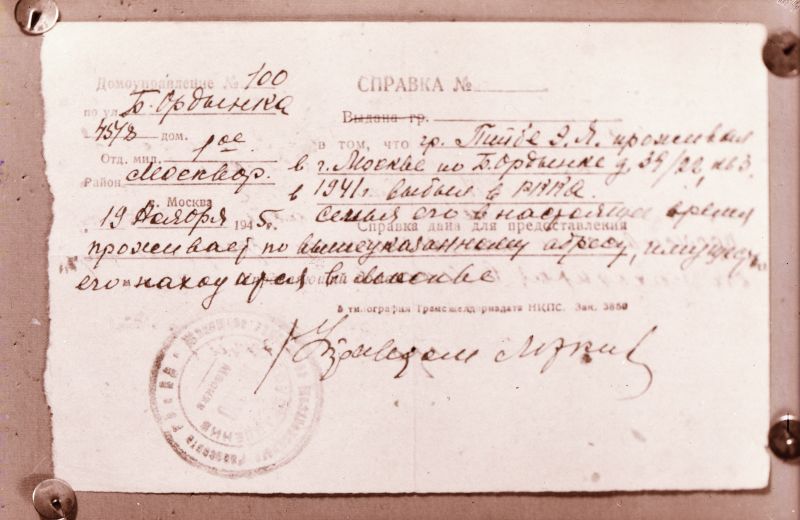 Домоуправление № 100
по ул. Б. Ордынка
45/8 дом.
Отд. мил. 1ое
Район Москвор.
г. Москва
19 Ноября 1945г.
СПРАВКА №
Выдана гр.
в том, что гр. Титбе Э. Я. проживал
в г. Москве по Б. Ордынке д. 39/22, кв 3.
в 1941г. выбыл в РККА.
семья его в настоящее время
Справка дана для предоставления
проживает по вышеуказанному адресу, имущество
его находится в Москве
В типография Трансжелдориздата НКПС. Зак. 3850
Управдом